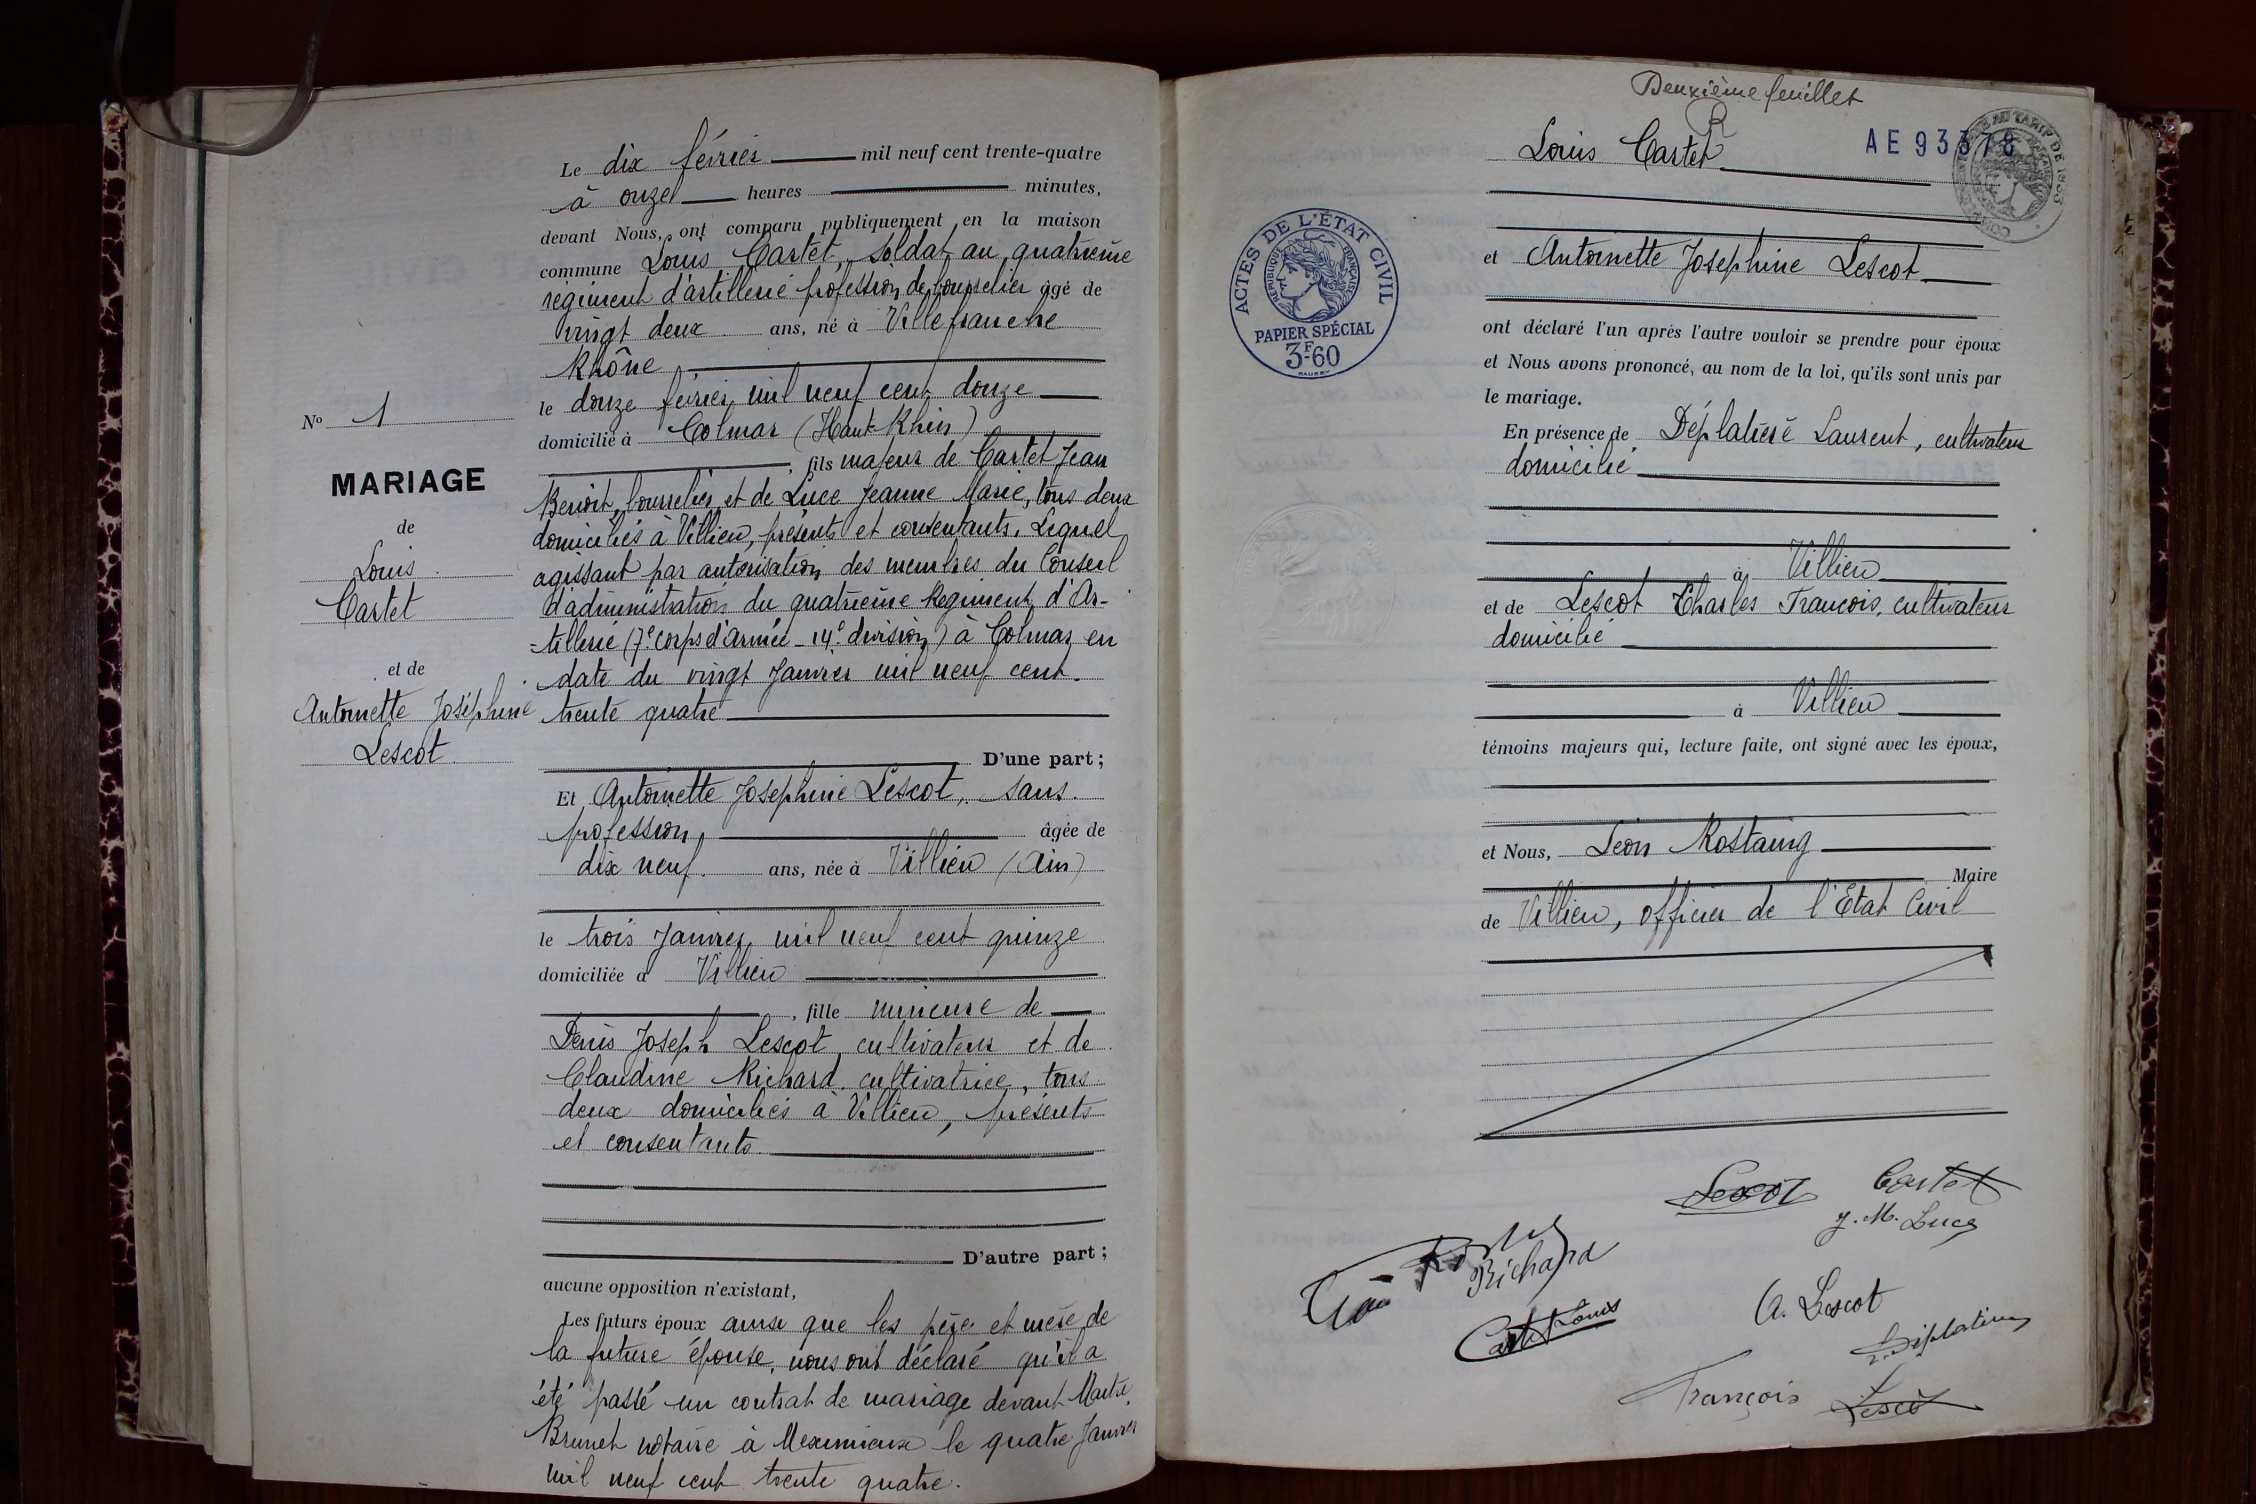 Le dix février mil neuf cent trente-quatre
à onze heures minutes,
devant Nous, ont comparu publiquement en la maison
commune Louis Cartet, soldat au quatrième
régiment d'artillerie profession de bourrelier âgé de
vingt deux ans, né à Villefranche
Rhône
le douze février mil neuf cent douze
domicilié à Colmar (Haut-Rhin)
, fils majeur de Cartet Jean
Benoit, bourrelier et de Luce Jeanne Marie, tous deux
domiciliés à Villieu, présents et consentants. Lequel
agissant par autorisation des membres du Conseil
d'administration du quatrième Régiment d'Ar-
-tillerie (7e corps d'armée - 14e division) à Colmar en
date du vingt Janvier mil neuf cent
trente quatre
D'une part;
Et Antoinette Joséphine Lescot, sans
profession, âgée de
dix neuf ans, née à Villieu (Ain)
le trois Janvier mil neuf cent quinze
domiciliée à Villieu
, fille mineure de
Denis Joseph Lescot, cultivateur et de
Claudine Richard, cultivatrice, tous
deux domiciliés à Villieu, présents
et consentants
D'autre part;
aucune opposition n'existant,
Les futurs époux ainsi que les père et mère de
la future épouse, nous ont déclaré qu'il a
été passé un contrat de mariage devant Maître
Brunet notaire à Meximieux le quatre Janvier
mil neuf cent trente quatre.
No 1
MARIAGE
de
Louis
Cartet
et de
Antoinette Joséphine
Lescot
Deuxième feuillet
R
AE 93378
Louis Cartet
ACTES DE L'ÉTAT CIVIL
RÉPUBLIQUE FRANÇAISE
PAPIER SPÉCIAL
3F60
et Antoinette Josephine Lescot
ont déclaré l'un après l'autre vouloir se prendre pour époux
et Nous avons prononcé, au nom de la loi, qu'ils sont unis par
le mariage.
En présence de Déplatière Laurent, cultivateur
domicilié
à Villieu
et de Lescot Charles François, cultivateur
domicilié
à Villieu
témoins majeurs qui, lecture faite, ont signé avec les époux,
et Nous, Léon Rostaing
Maire
de Villieu, officier de l'Etat Civil
Lescot Cartet
J. M. Luce
Richard
A. Lescot
Cartet Louis
L. Déplatière
François Lescot